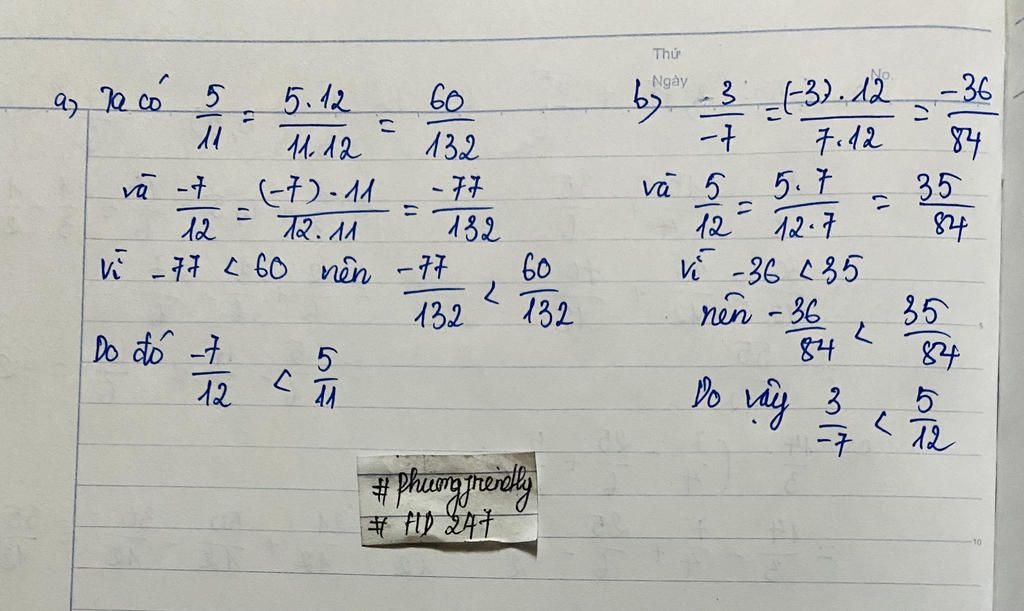 Thứ
Ngày
No.
a) Ta có 5/11 = 5.12/11.12 = 60/132
và -7/12 = (-7).11/12.11 = -77/132
vì -77 < 60 nên -77/132 < 60/132
Do đó -7/12 < 5/11
b) -3/-7 = (-3).12/7.12 = -36/84
và 5/12 = 5.7/12.7 = 35/84
vì -36 < 35
nên -36/84 < 35/84
Do vậy 3/-7 < 5/12
5
10
# phuongfriendly
# HD 247